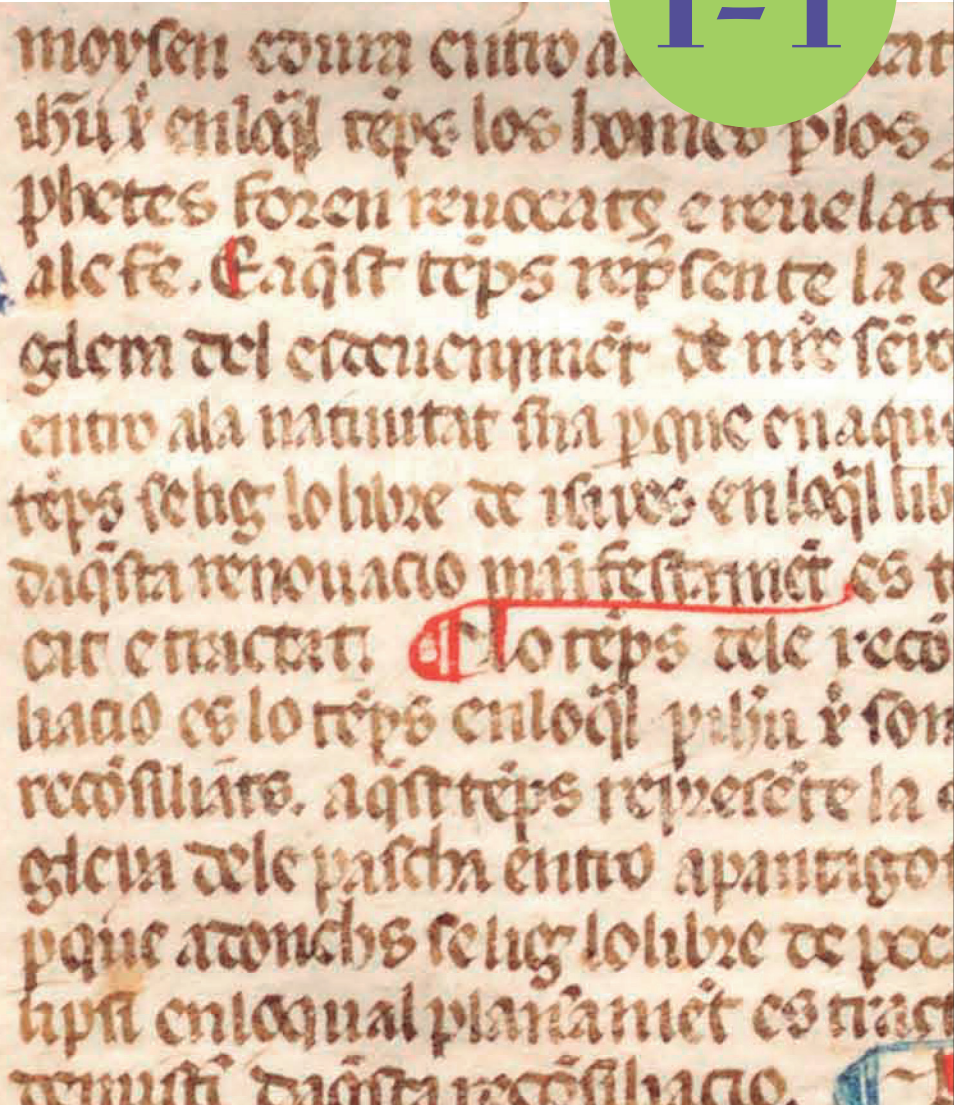 1-1
moysen coura entro a tat
ihũ x̃ enloq̃l tẽps los homes plos
phetes foren reuocats e reuelat
ale fe. E aq̃st tẽps rep̃sente la e
gleya del esdeueniment de nr̃e sẽy
entro ala natiuitat sua ꝑque en aque
tẽps selig lo libre de isayes enloq̃l lib
daq̃sta renouacio manifestamẽt es t
cat e tractat. lo tẽps dela recõ
liacio es lo tẽps enloq̃l ꝑ ihũ x̃ som
recõsiliats. aq̃st tẽps represẽte la e
gleya dela pascha entro apantagos
ꝑque adonchs selig lo libre de poc
lipsi enloqual planamẽt es tract
daq̃sta recõsiliacio.